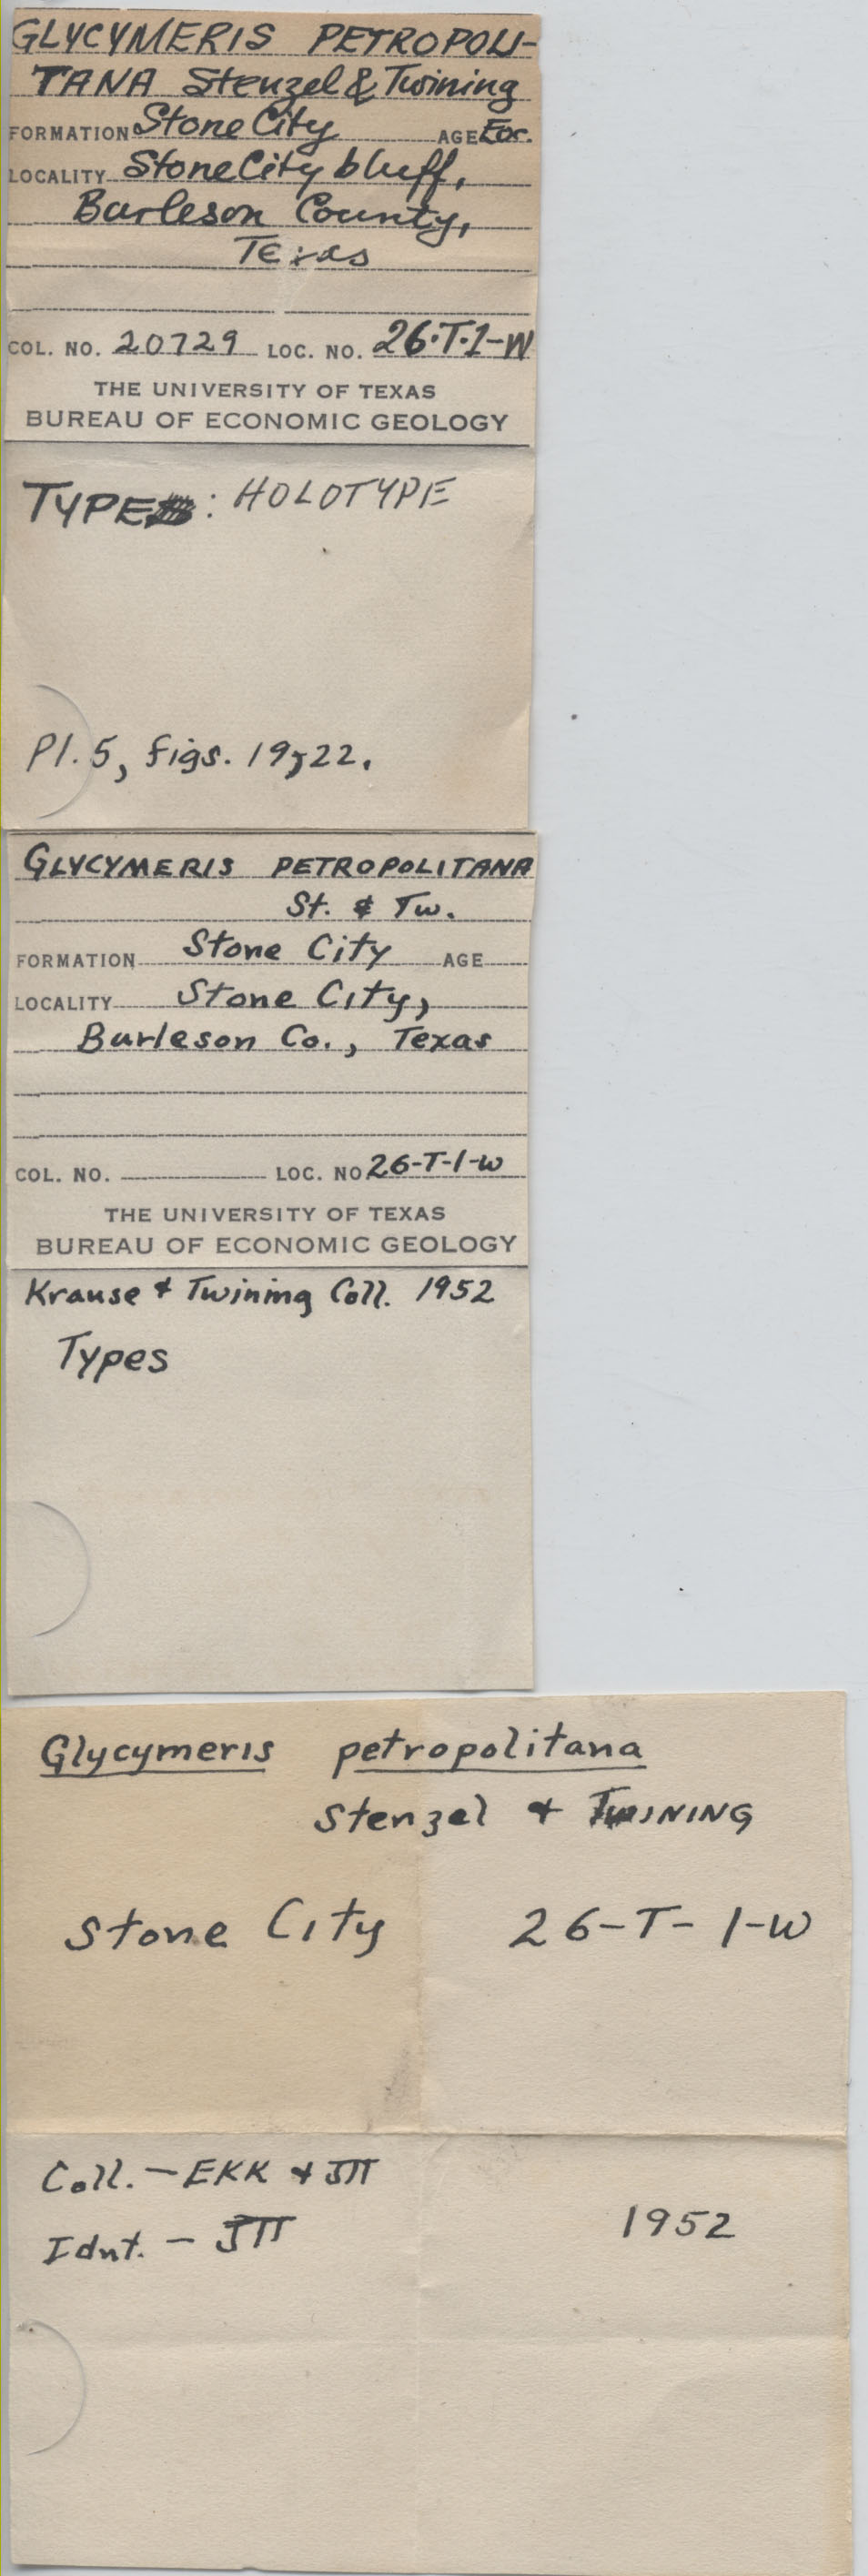 GLYCYMERIS PETROPOLI-
TANA Stenzel & Twining
FORMATION Stone City AGE Eoc.
LOCALITY Stone City bluff,
Burleson County,
Texas
COL. NO. 20729 LOC. NO. 26-T-1-W
THE UNIVERSITY OF TEXAS
BUREAU OF ECONOMIC GEOLOGY
TYPE: HOLOTYPE
Pl. 5, figs. 19, 22.
GLYCYMERIS PETROPOLITANA
St. & Tw.
FORMATION Stone City AGE
LOCALITY Stone City,
Burleson Co., Texas
COL. NO. LOC. NO 26-T-1-W
THE UNIVERSITY OF TEXAS
BUREAU OF ECONOMIC GEOLOGY
Krause & Twining Coll. 1952
Types
Glycymeris petropolitana
Stenzel & TWINING
Stone City 26-T-1-W
Coll. - EKK & JTT
Idnt. - JTT
1952